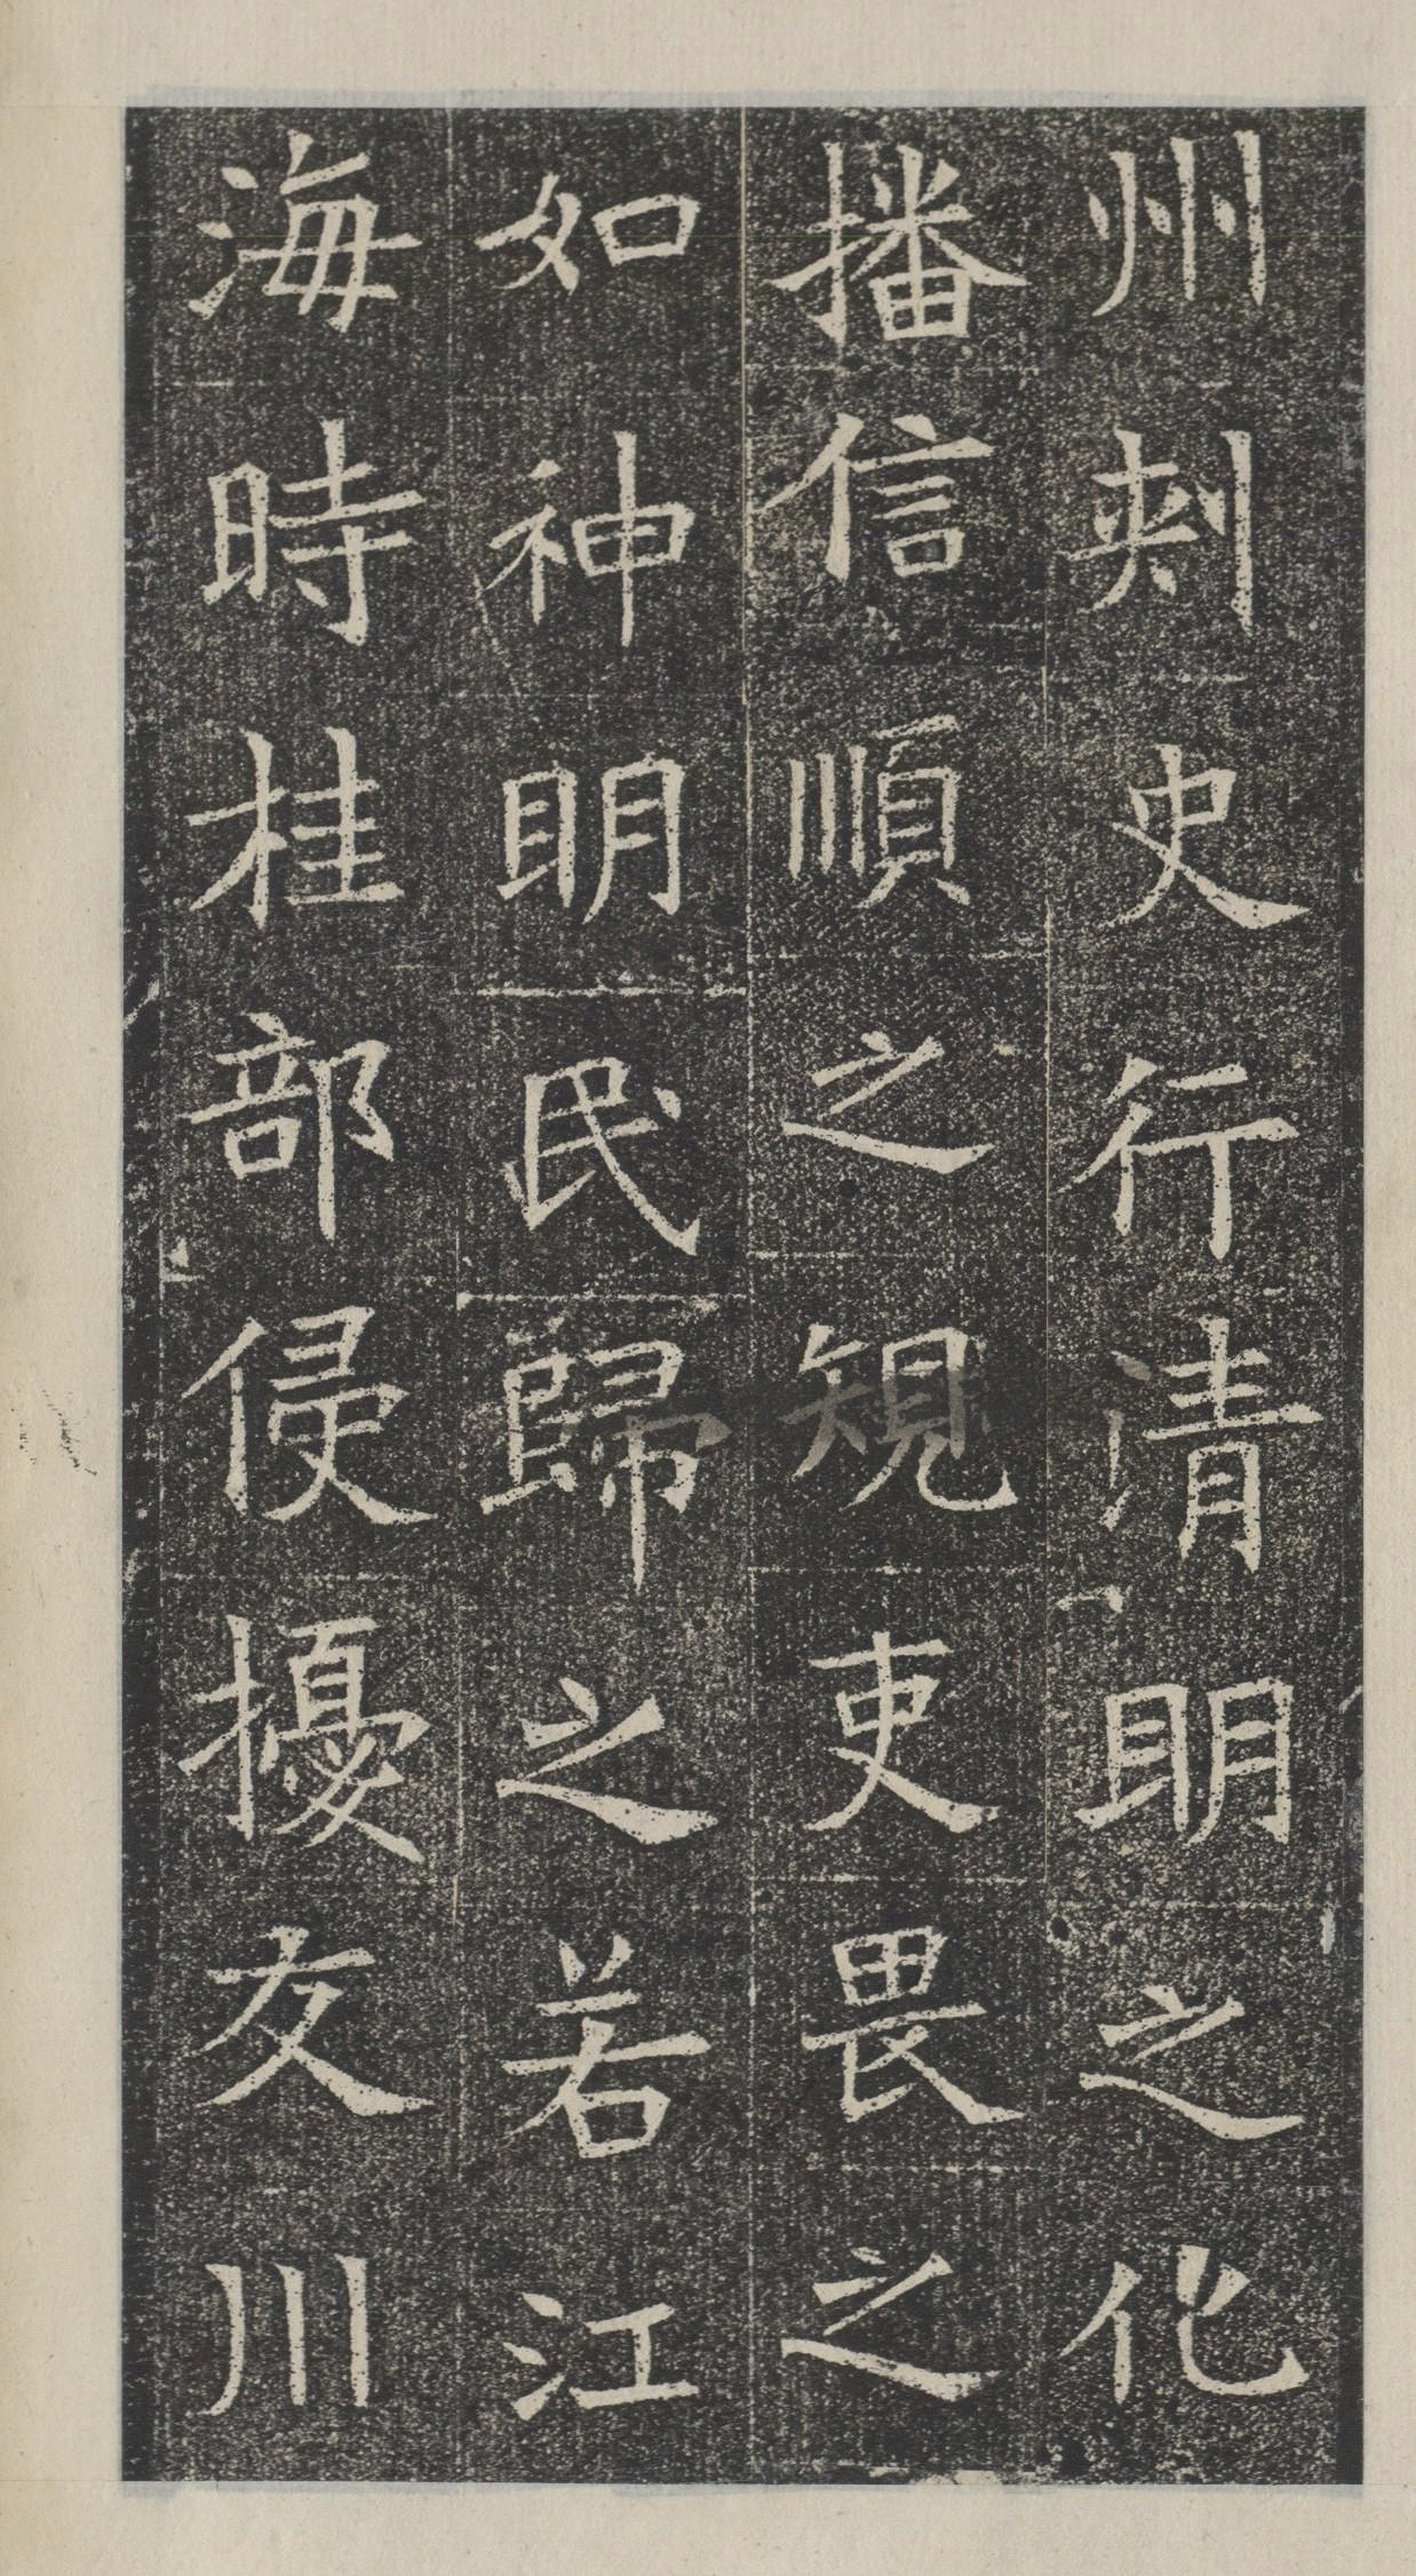 州刺史行清明之化
播信順之規吏畏之
如神明民歸之若江
海時桂部侵擾交川